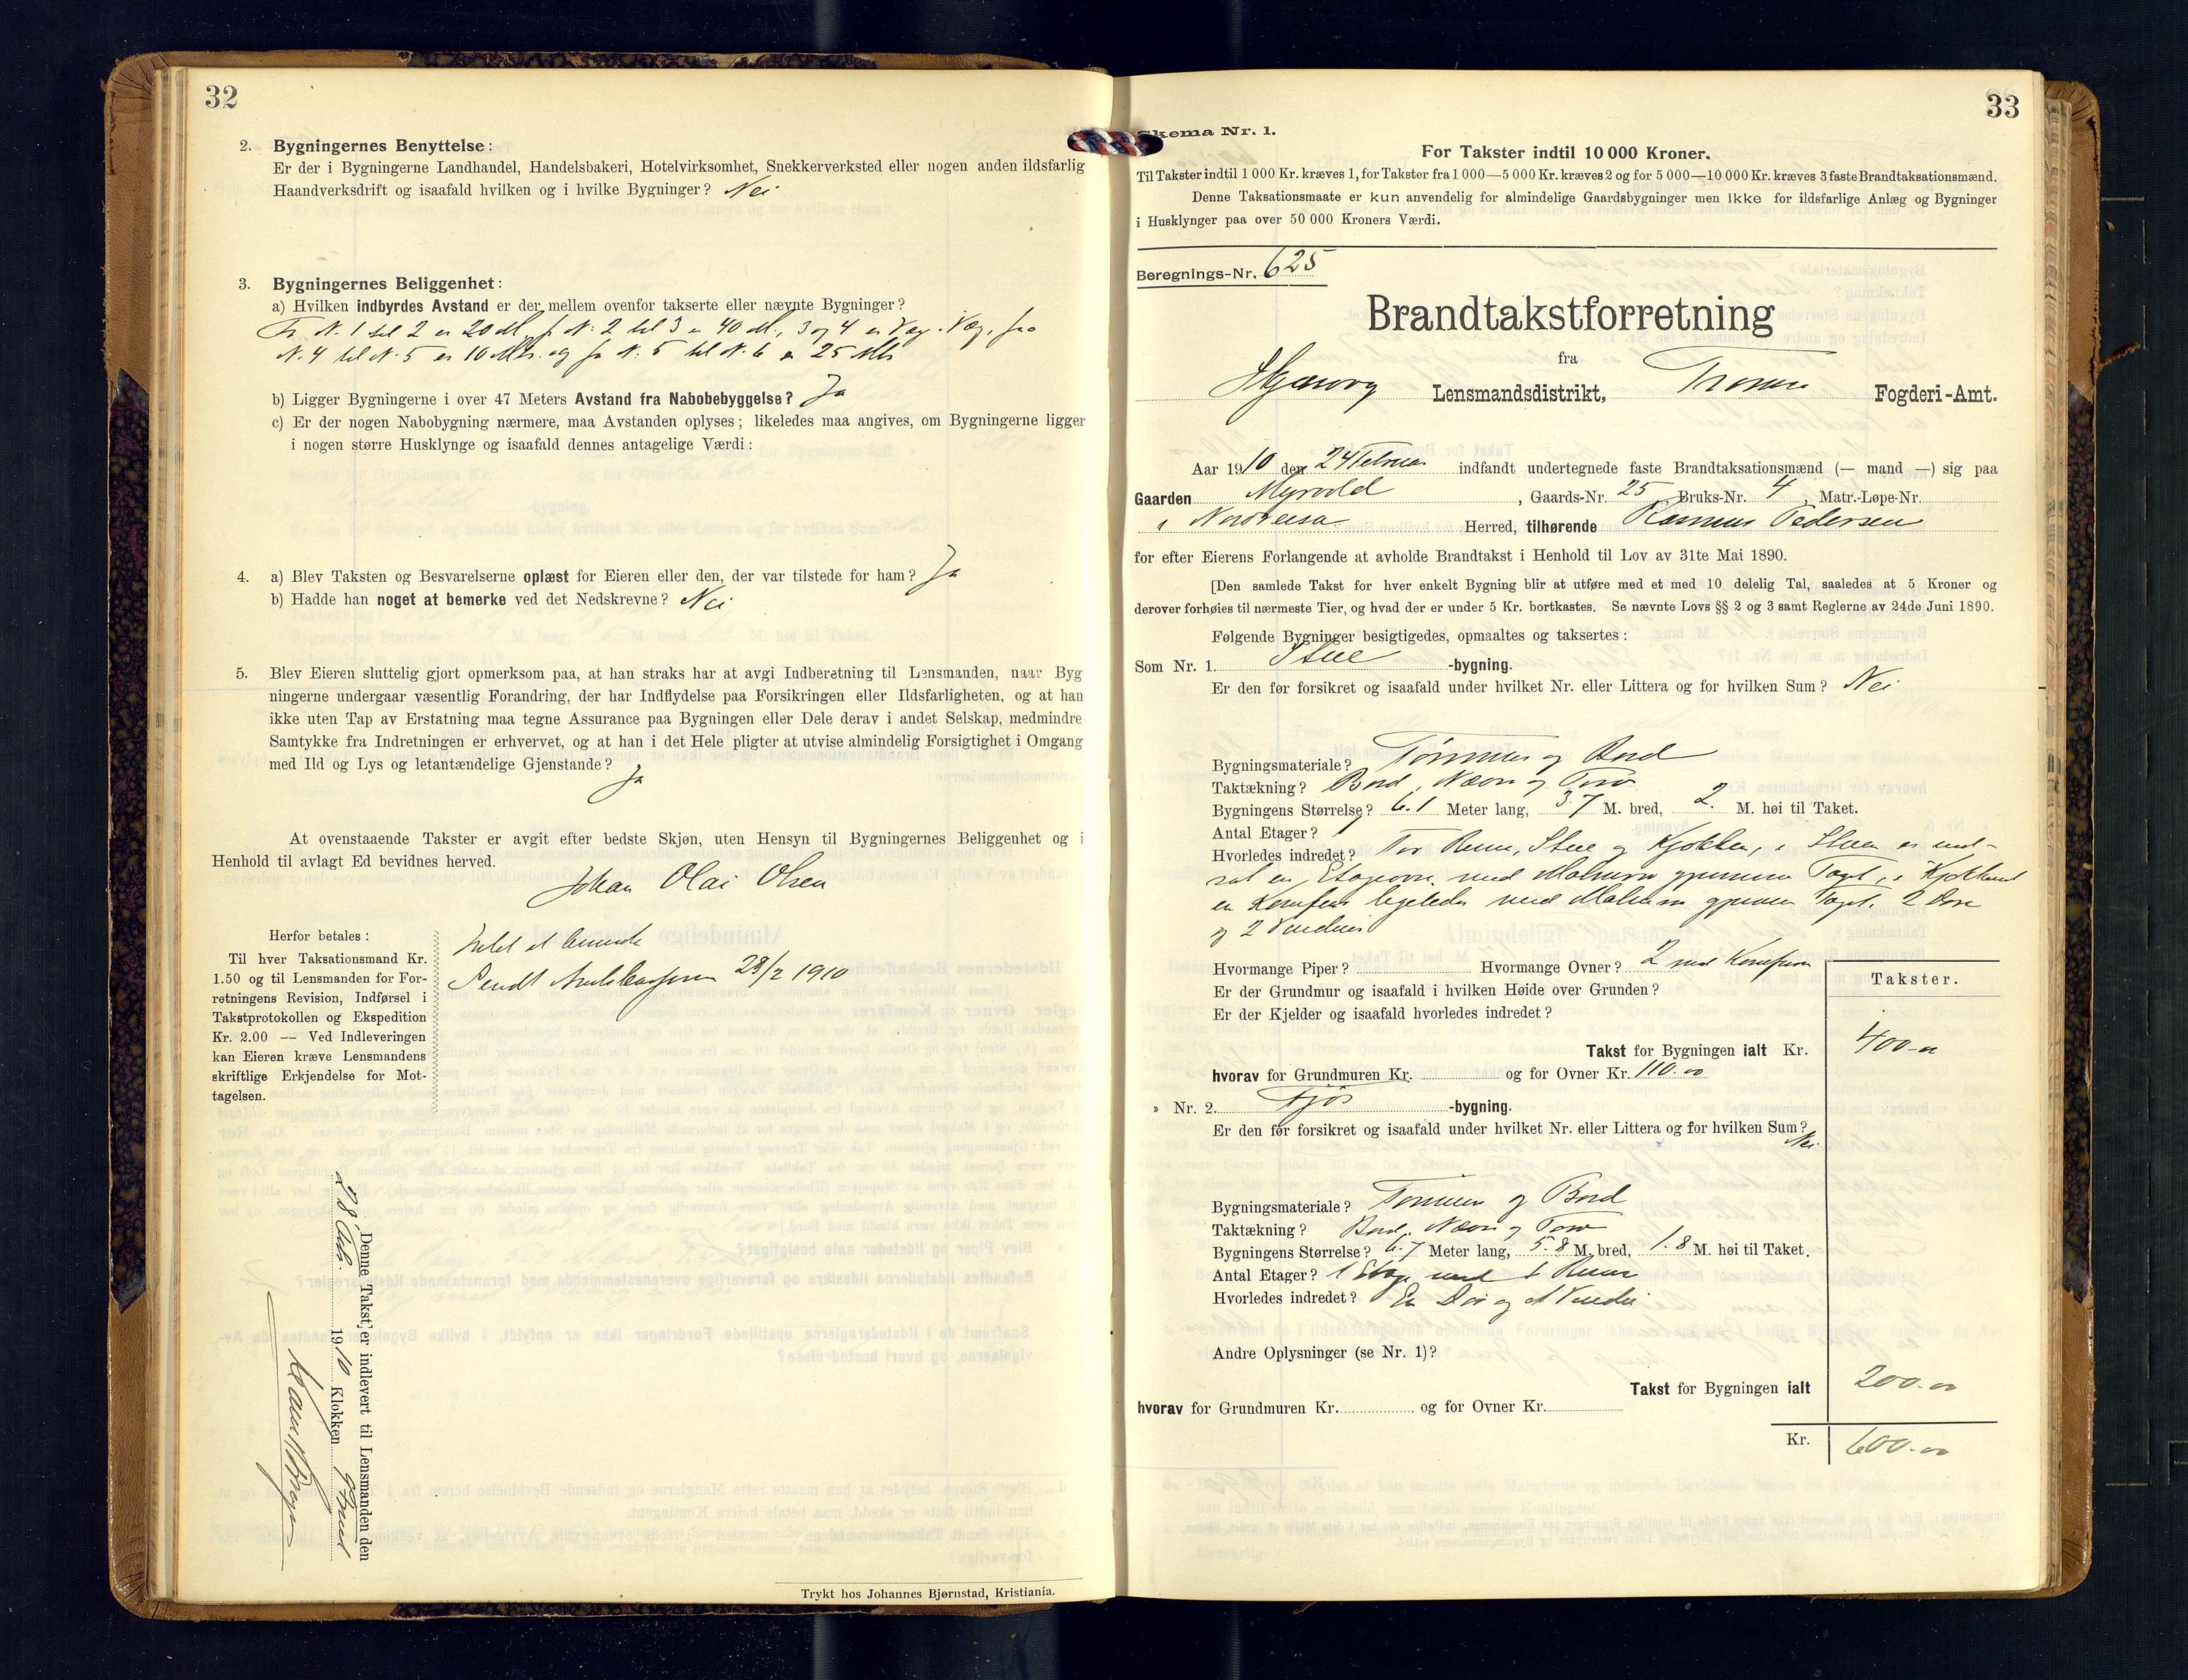 32
2. Bygningernes Benyttelse:
Er der i Bygningerne Landhandel, Handelsbakeri, Hotelvirksomhet, Snekkerverksted eller nogen anden ildsfarlig
Haandverksdrift og isaafald hvilken og i hvilke Bygninger? Nei
3. Bygningernes Beliggenhet:
a) Hvilken indbyrdes Avstand er der mellem ovenfor takserte eller nævnte Bygninger?
Fr. N. 1 til 2 er 20 M, fr N: 2 til 3 er 40 M., 3 og 4 er Væg i Væg, fra
N. 4 til N. 5 er 10 Mtr. og fr N. 5 til N. 6 er 25 Mtr
b) Ligger Bygningerne i over 47 Meters Avstand fra Nabobebyggelse? Ja
c) Er der nogen Nabobygning nærmere, maa Avstanden oplyses; likeledes maa angives, om Bygningerne ligger
i nogen større Husklynge og isaafald dennes antagelige Værdi:
4. a) Blev Taksten og Besvarelserne oplæst for Eieren eller den, der var tilstede for ham? Ja
b) Hadde han noget at bemerke ved det Nedskrevne? Nei
5. Blev Eieren sluttelig gjort opmerksom paa, at han straks har at avgi Indberetning til Lensmanden, naar Byg
ningerne undergaar væsentlig Forandring, der har Indflydelse paa Forsikringen eller Ildsfarligheten, og at han
ikke uten Tap av Erstatning maa tegne Assurance paa Bygningen eller Dele derav i andet Selskap, medmindre
Samtykke fra Indretningen er erhvervet, og at han i det Hele pligter at utvise almindelig Forsigtighet i Omgang
med Ild og Lys og letantændelige Gjenstande? Ja
At ovenstaaende Takster er avgit efter bedste Skjøn, uten Hensyn til Bygningernes Beliggenhet og i
Henhold til avlagt Ed bevidnes herved.
Johan Olai Olsen
Herfor betales:
Til hver Taksationsmand Kr.
1.50 og til Lensmanden for For-
retningens Revision, Indførsel i
Takstprotokollen og Ekspedition
Kr. 2.00 — Ved Indleveringen
kan Eieren kræve Lensmandens
skriftlige Erkjendelse for Mot-
tagelsen.
Intet at bemerke
Sendt 28/2 1910
Denne Takst er indlevert til Lensmanden den
28 Feb. 1910 Klokken
Trykt hos Johannes Bjørnstad, Kristiania.
33
Skema Nr. 1.
For Takster indtil 10 000 Kroner.
Til Takster indtil 1 000 Kr. kræves 1, for Takster fra 1 000—5 000 Kr. kræves 2 og for 5 000—10 000 Kr. kræves 3 faste Brandtaksationsmænd.
Denne Taksationsmaate er kun anvendelig for almindelige Gaardsbygninger men ikke for ildsfarlige Anlæg og Bygninger
i Husklynger paa over 50 000 Kroners Værdi.
Beregnings-Nr. 625
Brandtakstforretning
fra
Skjervøy Lensmandsdistrikt, Tromsø Fogderi-Amt.
Aar 1910 den 24 Februar indfandt undertegnede faste Brandtaksationsmænd (— mand —) sig paa
Gaarden Myrvold, Gaards-Nr. 25, Bruks-Nr. 4, Matr.-Løpe-Nr.
i Nordreisa Herred, tilhørende Rasmus Pedersen
for efter Eierens Forlangende at avholde Brandtakst i Henhold til Lov av 31te Mai 1890.
[Den samlede Takst for hver enkelt Bygning blir at utføre med et med 10 delelig Tal, saaledes at 5 Kroner og
derover forhøies til nærmeste Tier, og hvad der er under 5 Kr. bortkastes. Se nævnte Lovs §§ 2 og 3 samt Reglerne av 24de Juni 1890.
Følgende Bygninger besigtigedes, opmaaltes og taksertes:
Som Nr. 1. Stue -bygning.
Er den før forsikret og isaafald under hvilket Nr. eller Littera og for hvilken Sum? Nei
Bygningsmateriale? Tømmer og Bord
Taktækning? Bord, Næver og Torv
Bygningens Størrelse? 6.1 Meter lang, 3.7 M. bred, 2. M. høi til Taket.
Antal Etager? 1
Hvorledes indredet? To Rum, Stue og Kjøkken, i Stuen er ind-
sat en Etageovn med Malmrør gjennem Taget, i Kjøkkenet
en Komfur ligeledes med Malmrør gjennem Taget. 2 Døre
og 2 Vinduer
Hvormange Piper? Hvormange Ovner? 2 med Komfuren
Er der Grundmur og isaafald i hvilken Høide over Grunden?
Er der Kjelder og isaafald hvorledes indredet?
Takster.
Takst for Bygningen ialt Kr. 400.00
hvorav for Grundmuren Kr. og for Ovner Kr. 110.00
» Nr. 2. Fjøs -bygning.
Er den før forsikret og isaafald under hvilket Nr. eller Littera og for hvilken Sum? Nei
Bygningsmateriale? Tømmer og Bord
Taktækning? Bord, Næver og Torv
Bygningens Størrelse? 6.7 Meter lang, 5.8 M. bred, 1.8 M. høi til Taket.
Antal Etager? 1 Etage med 1 Rum
Hvorledes indredet? En Dør og et Vindu
Andre Oplysninger (se Nr. 1)?
Takst for Bygningen ialt 200.00
hvorav for Grundmuren Kr. og for Ovner Kr.
Kr. 600.00